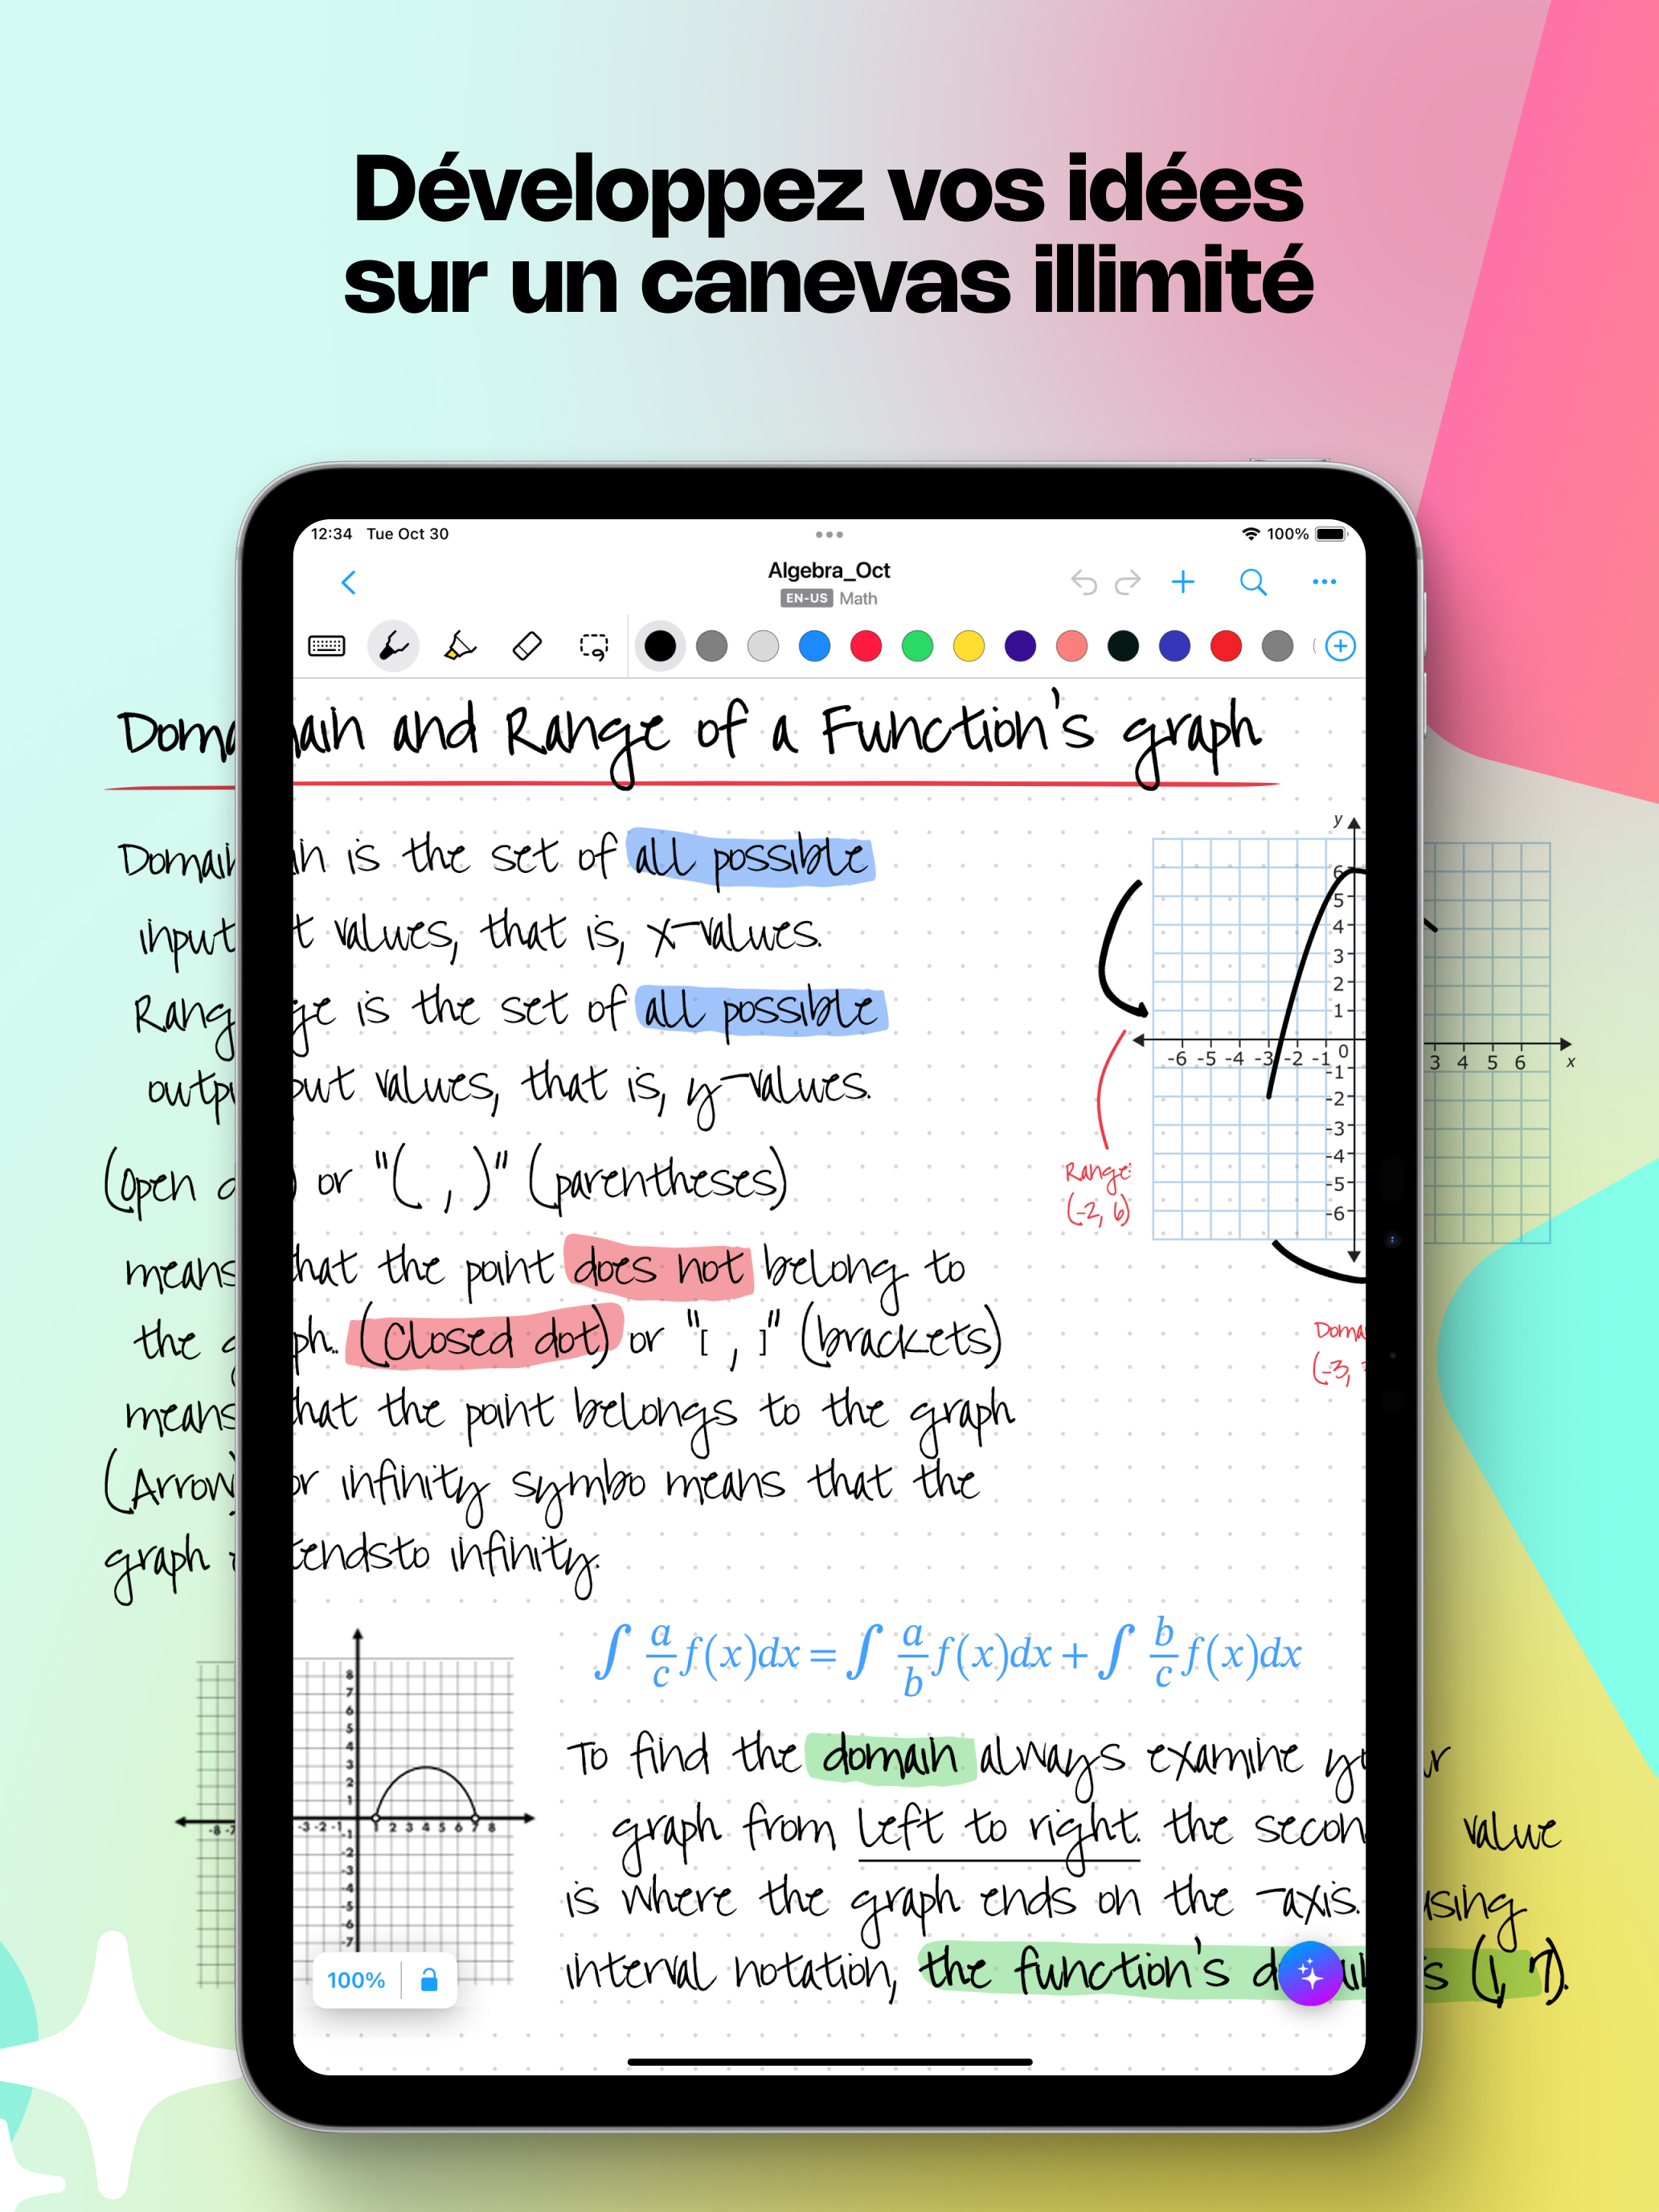 Développez vos idées
sur un canevas illimité
12:34 Tue Oct 30
100%
Algebra_Oct
EN-US Math
Domain and Range of a Function's graph
Domain is the set of all possible
input values, that is, x-values.
Range is the set of all possible
output values, that is, y-values.
(Open d ) or "( , )" (parentheses)
means that the point does not belong to
the graph. (Closed dot) or "[ , ]" (brackets)
means that the point belongs to the graph
(Arrow) or infinity symbo means that the
graph tendsto infinity.
y
6
5
4
3
2
1
-6 -5 -4 -3 -2 -1 0 3 4 5 6 x
-1
-2
-3
-4
-5
-6
Range:
(-2, 6)
Doma
(-3,
∫ a/c f(x)dx = ∫ a/b f(x)dx + ∫ b/c f(x)dx
8
7
6
5
4
3
2
1
-8 -7 -3 -2 -1 1 2 3 4 5 6 7 8
-1
-2
-3
-4
-5
-6
-7
To find the domain always examine your
graph from left to right. the secon value
is where the graph ends on the -axis. using
interval notation, the function's domain is (1, 7).
100%